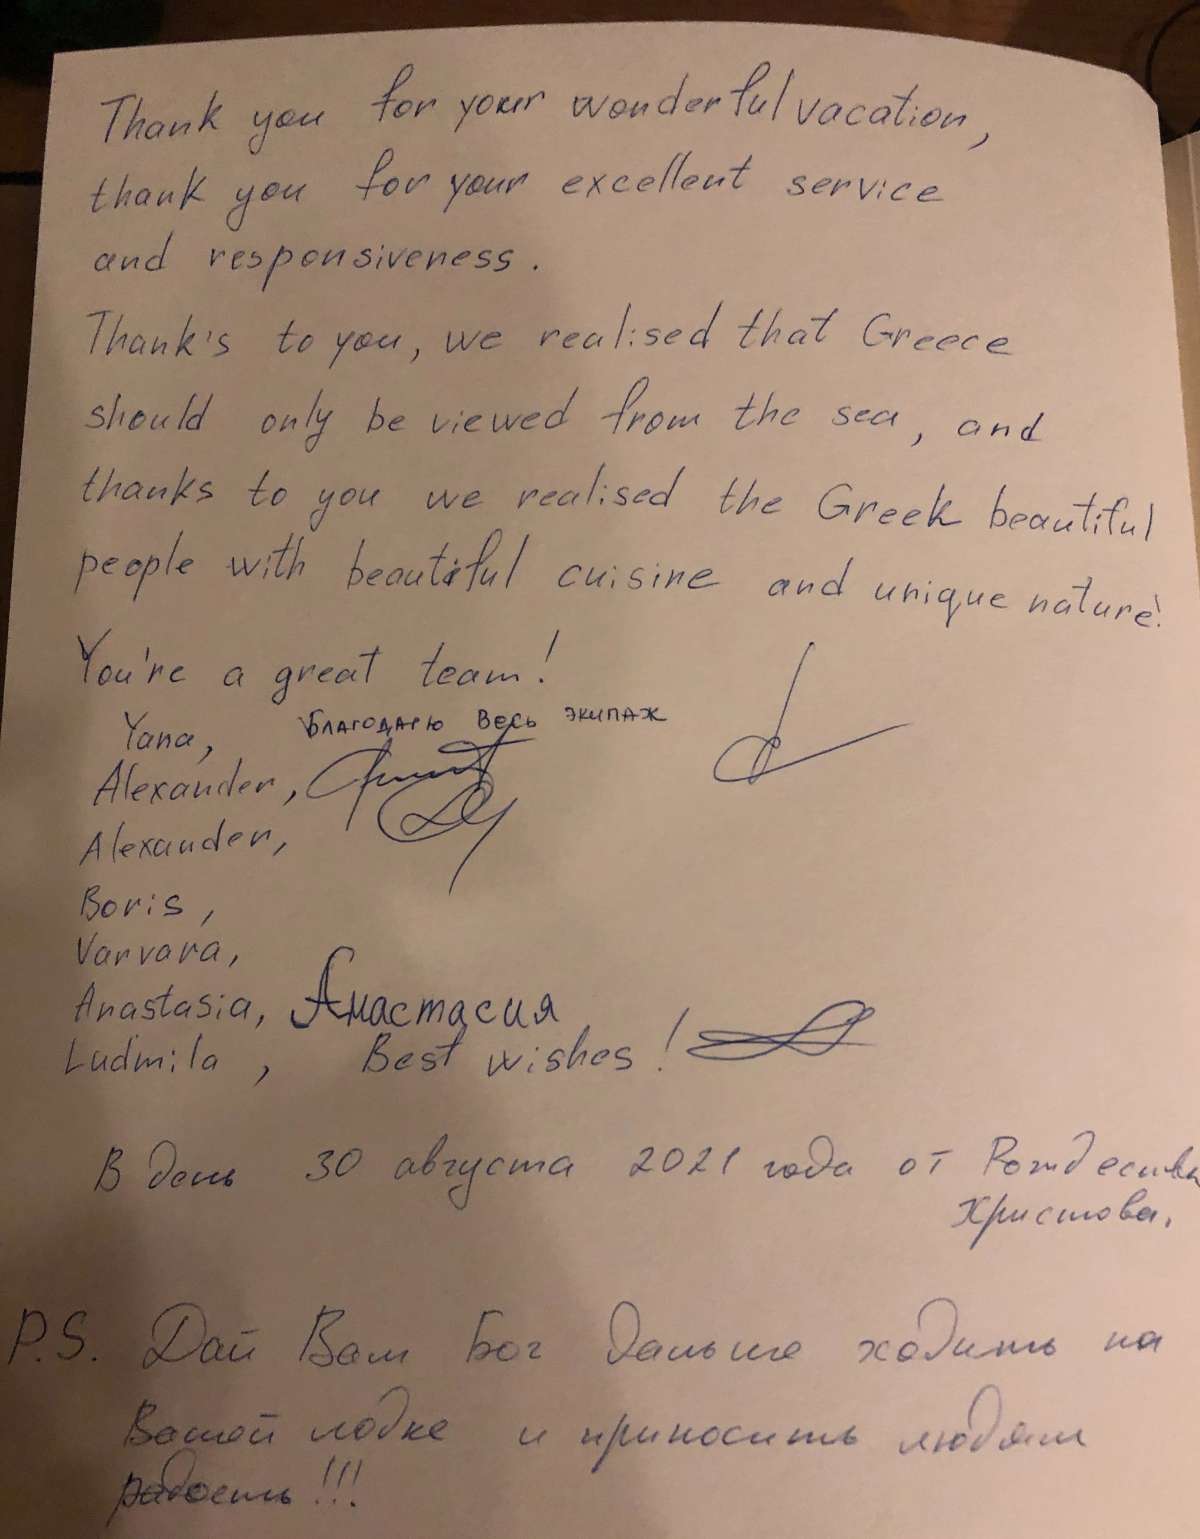 Thank you for your wonderful vacation,
thank you for your excellent service
and responsiveness.
Thank's to you, we realised that Greece
should only be viewed from the sea, and
thanks to you we realised the Greek beautiful
people with beautiful cuisine and unique nature!
You're a great team!
Yana, Благодарю весь экипаж
Alexander,
Alexander,
Boris,
Varvara,
Anastasia, Анастасия
Ludmila, Best wishes!
В день 30 августа 2021 года от Рождества
Христова.
P.S. Дай Вам Бог дальше ходить на
Вашей лодке и приносить людям
радость!!!